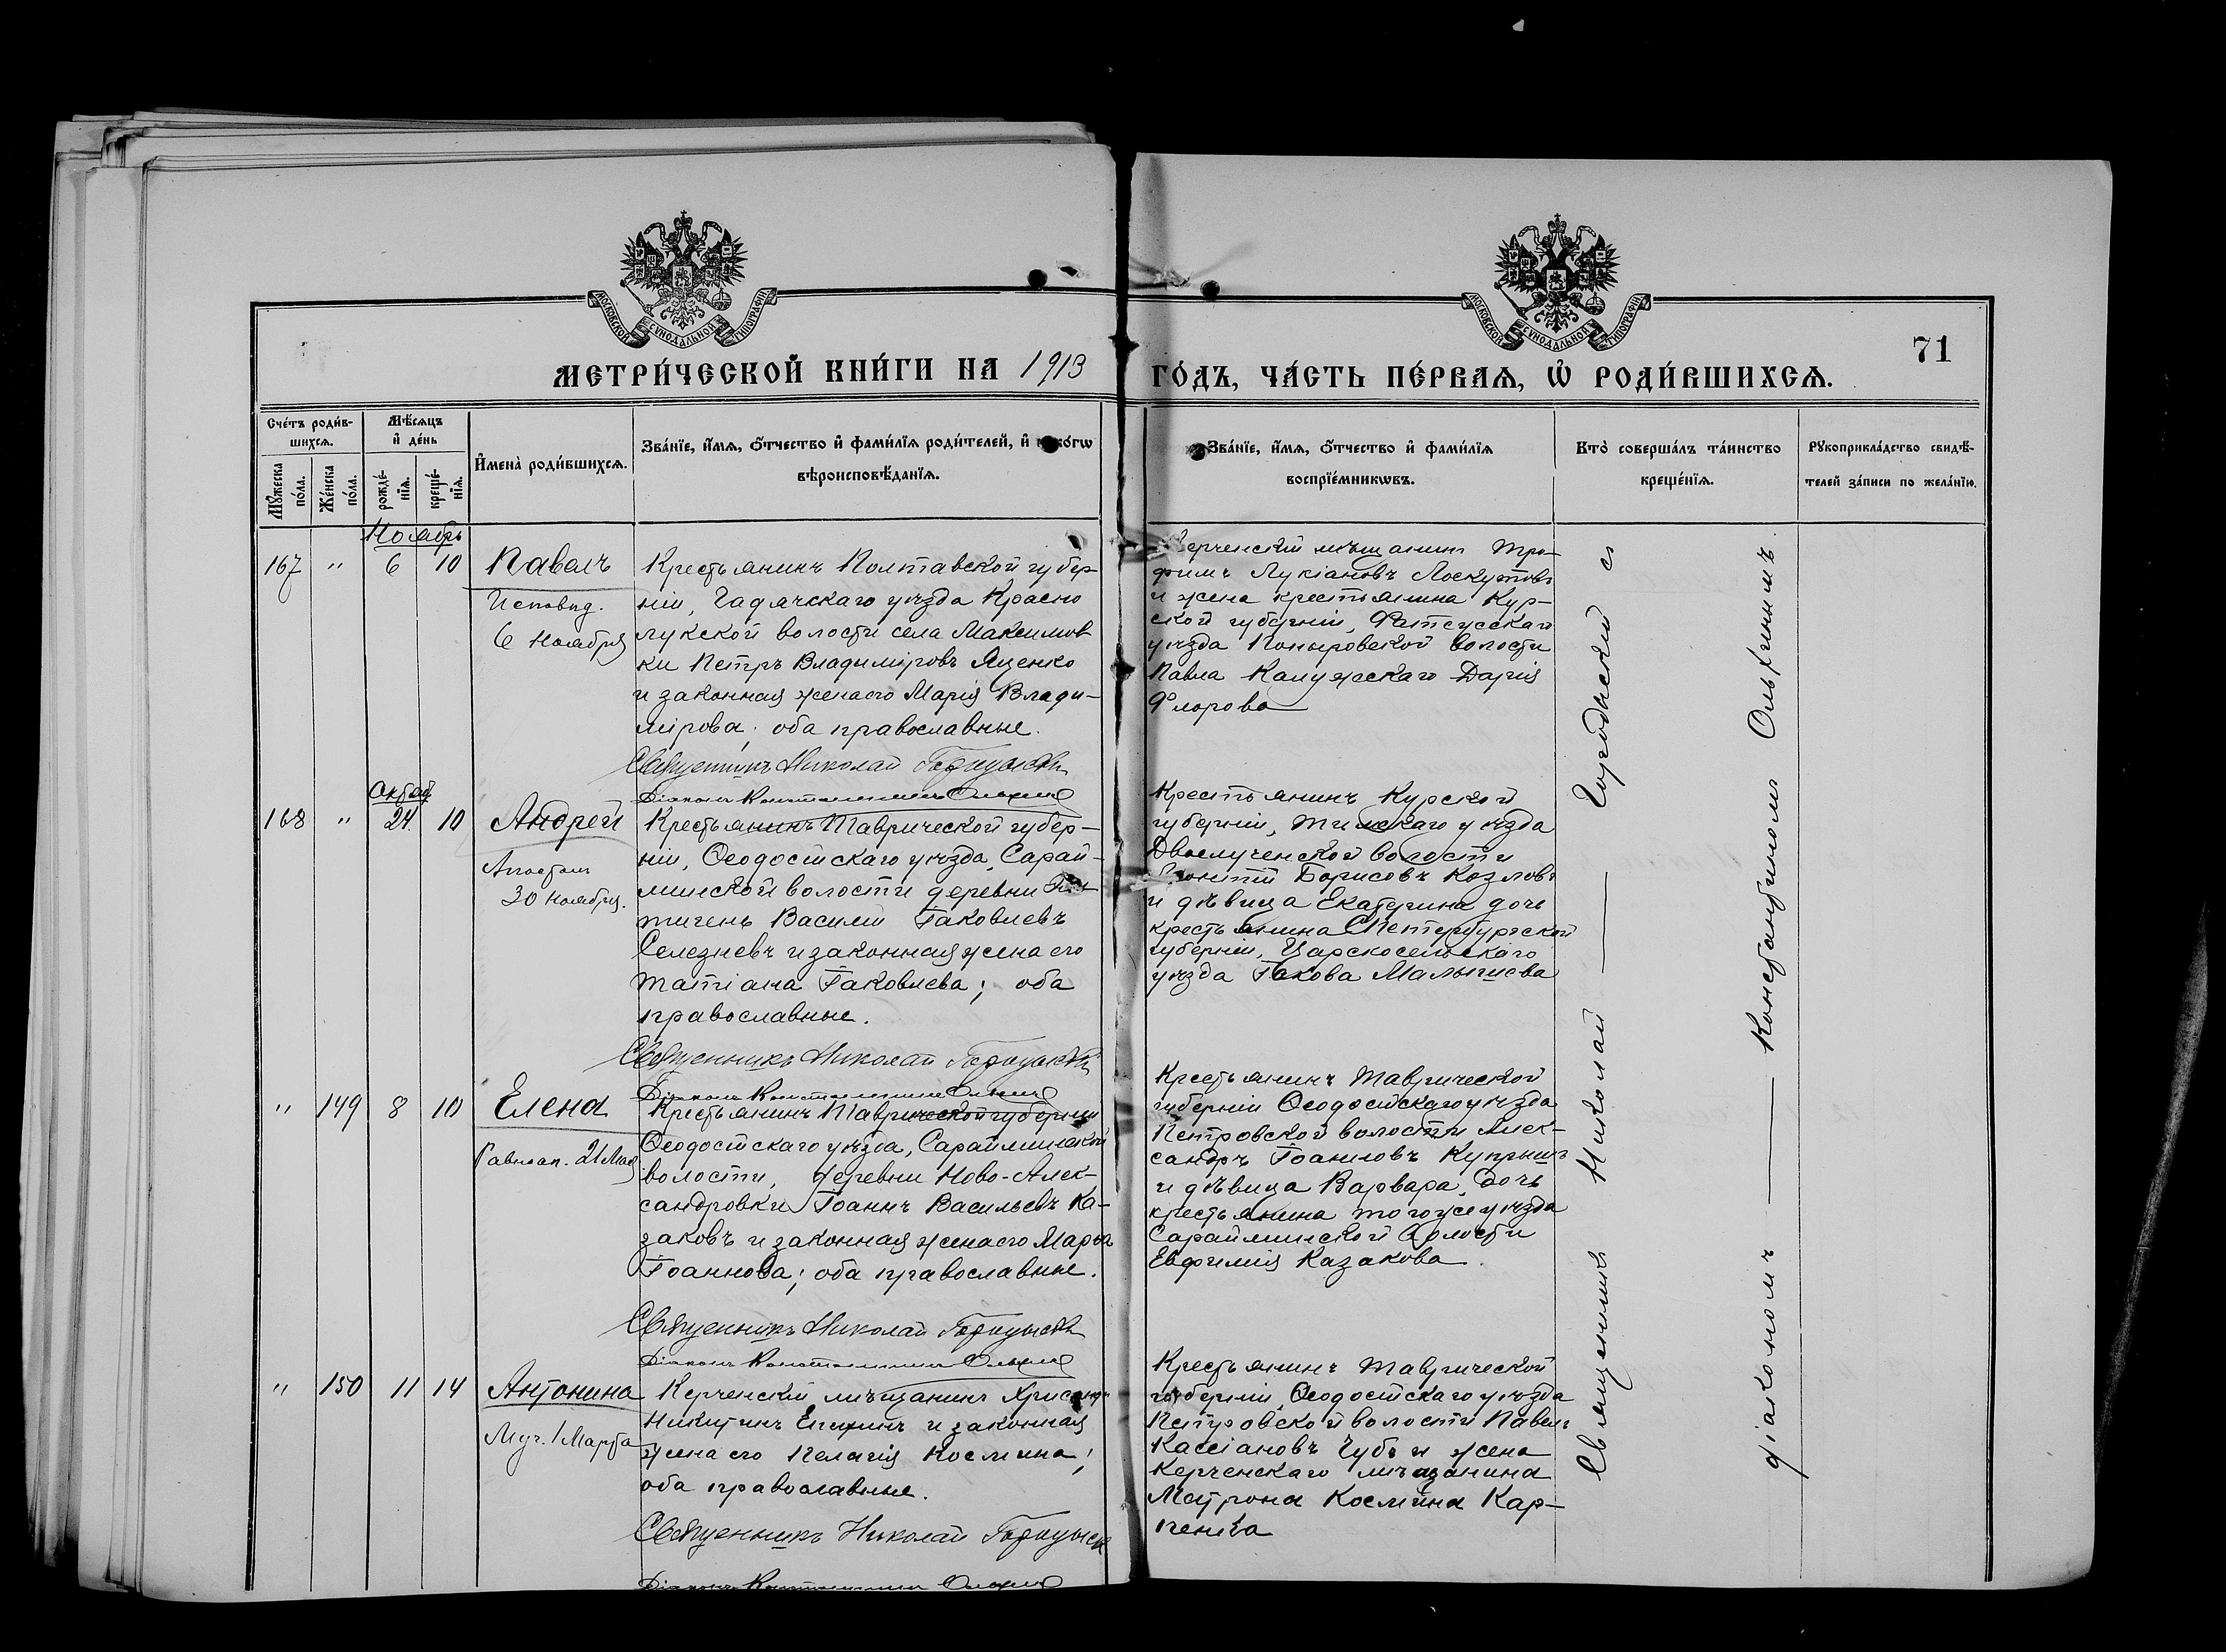 МОСКОВСКОЙ СѴНОДАЛЬНОЙ ТИПОГРАФІИ
МОСКОВСКОЙ СѴНОДАЛЬНОЙ ТИПОГРАФІИ
71
МЕТРИ́ЧЕСКОЙ КНИ́ГИ НА 1913 ГО́ДЪ, ЧА́СТЬ ПЕ́РВАѦ, Ѡ҆ РОДИ́ВШИХСѦ.
Сче́тъ роди́в-
шихсѧ.
Мѣ́сѧцъ
и҆ де́нь
Мꙋ́жеска по́ла.
Же́нска по́ла.
рожде́-
нїѧ.
креще́-
нїѧ.
И҆мена̀ роди́вшихсѧ.
Зва́нїе, и҆́мѧ, ѻ҆́тчество и҆ фами́лїѧ роди́телей, и҆
вѣроисповѣ́данїѧ.
Зва́нїе, и҆́мѧ, ѻ҆́тчество и҆ фами́лїѧ
воспрїе́мникѡвъ.
Кто̀ соверша́лъ та́инство
креще́нїѧ.
Рꙋкоприкла́дство свидѣ́-
телей за́писи по жела́нїю.
Ноябрь
167 " 6 10 Павелъ
Исповѣд.
6 Ноября
Крестьянинъ Полтавской губер-
ніи, Гадячскаго уѣзда Красно
лукской волости села Максимов
ки Петръ Владиміровъ Яценко
и законная жена его Марія Влади-
мірова; оба православные.
Священникъ Николай
Діаконъ Константинъ
Керченскій мѣщанинъ Тро-
фимъ Лукіановъ Лоскутовъ
и жена крестьянина Кур-
ской губерніи, Фатежскаго
уѣзда Поныровской волости
Павла Калужскаго Дарія
Флорова
Октябрь
168 " 24 10 Андрей
Апостол
30 Ноября.
Крестьянинъ Таврической губер-
ніи, Ѳеодосійскаго уѣзда, Сарай-
минской волости деревни
Василій Іаковлевъ
Селезневъ и законная жена его
Татіана Іаковлева; оба
православные.
Священникъ Николай
Діаконъ Константинъ
Крестьянинъ Курской
губерніи, Тимскаго уѣзда
Двоелученской волости
Борисовъ Козловъ
и дѣвица Екатерина дочь
крестьянина СПетербургской
губерніи, Царскосельскаго
уѣзда Іакова Малышева
" 149 8 10 Елена
Равноап. 21 Мая
Крестьянинъ Таврической губерніи
Ѳеодосійскаго уѣзда, Сарайминской
волости, деревни Ново-Алек-
сандровки Іоаннъ Васильевъ Ка-
заковъ и законная жена его Марѳа
Іоаннова; оба православные.
Священникъ Николай
Діаконъ Константинъ
Крестьянинъ Таврической
губерніи Ѳеодосійскаго уѣзда
Петровской волости Алек-
сандръ Іоанновъ
и дѣвица Варвара, дочь
крестьянина того же уѣзда
Сарайминской волости
Евфимія Казакова.
" 150 11 14 Антонина
Муч. 1 Марта
Керченскій мѣщанинъ
Никитинъ и законная
жена его Пелагія Космина;
оба православные.
Священникъ Николай
Діаконъ Константинъ
Крестьянинъ Таврической
губерніи, Ѳеодосійскаго уѣзда
Петровской волости Павелъ
Кассіановъ Чубъ и жена
Керченскаго мѣщанина
Матрона Космина Кар-
пенко
Священникъ Николай с
діакономъ Константиномъ